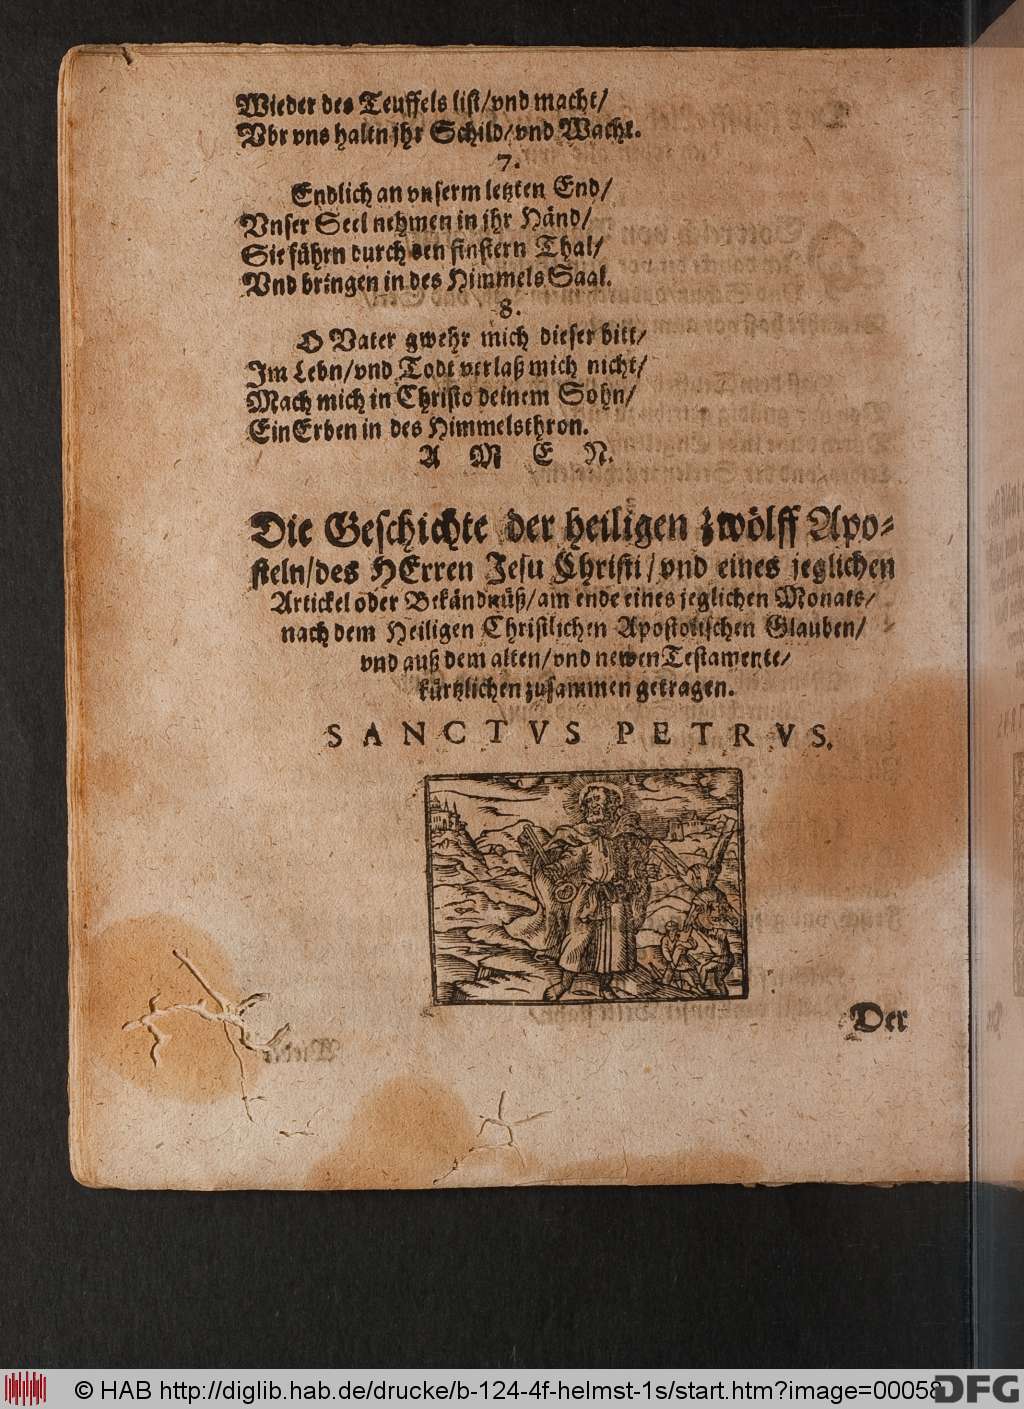 Wieder des Teuffels list/vnd macht/
Vbr vns haltn jhr Schild/vnd Wacht.
7.
Endlich an vnserm letzten End/
Vnser Seel nehmen in jhr Händ/
Sie führn durch den finstern Thal/
Vnd bringen in des Himmels Saal.
8.
O Vater gwehr mich dieser bitt/
Im Lebn/vnd Todt verlaß mich nicht/
Mach mich in Christo deinem Sohn/
Ein Erben in des Himmelsthron.
A M E N.
Die Geschichte der heiligen zwölff Apo-
steln/des HErren Jesu Christi/vnd eines jeglichen
Artickel oder Bekändnüß/am ende eines jeglichen Monats/
nach dem Heiligen Christlichen Apostolischen Glauben/
vnd auß dem alten/vnd newen Testamente/
kürtzlichen zusammen getragen.
SANCTVS PETRVS.
Der
© HAB http://diglib.hab.de/drucke/b-124-4f-helmst-1s/start.htm?image=00058
DFG